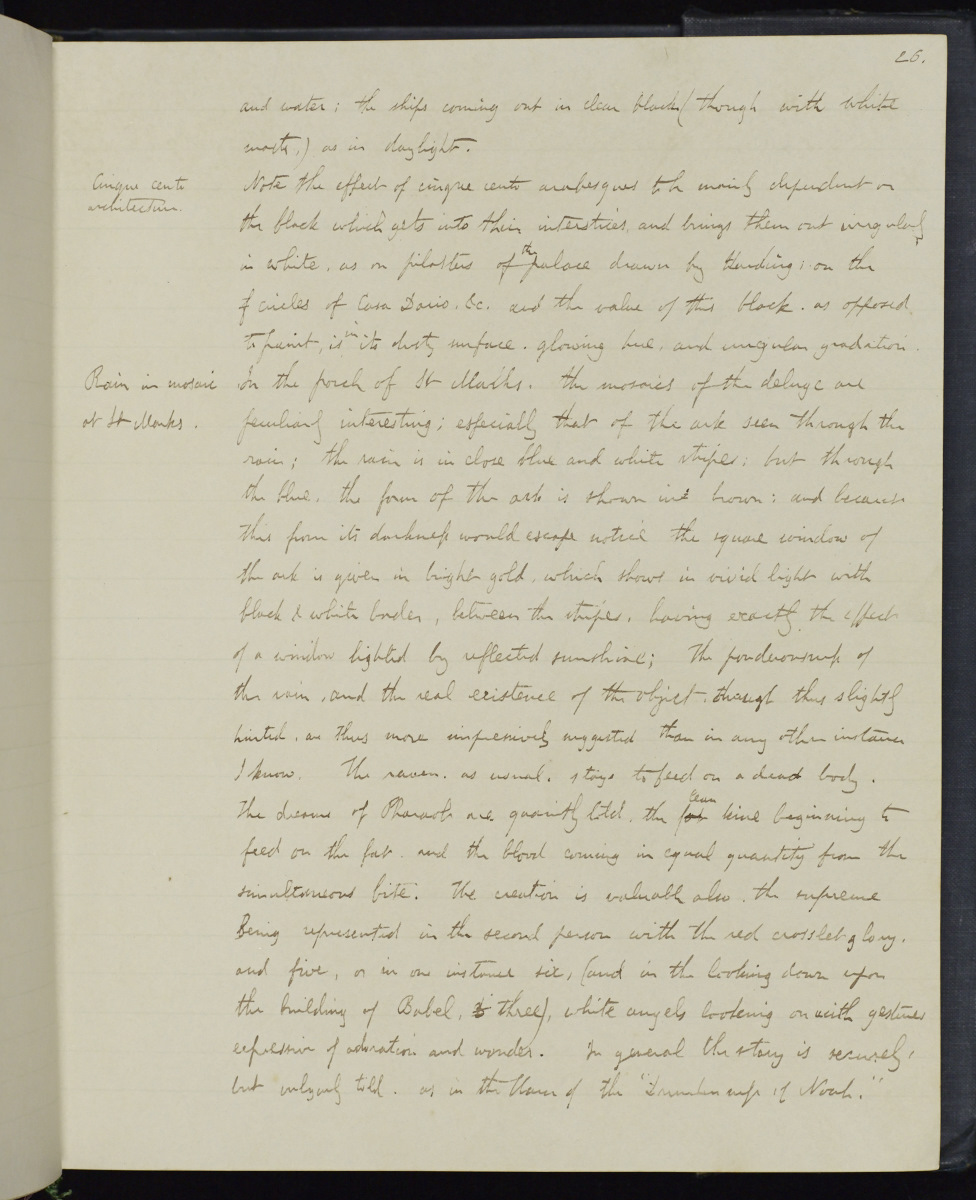 26.
and water; the ships coming out in clear black (though with white
masts,) as in daylight.
Cinque cento
architecture.
Note the effect of cinque cento arabesques to be mainly dependent on
the black which gets into their interstices, and brings them out irregularly
in white, as on pilasters of the palace drawn by Harding; on the
circles of Casa Dario. &c. and the value of this black. as opposed
to paint, is in its dusty surface. glowing hue, and irregular gradation.
Rain in mosaic
at St Marks.
In the porch of St Marks. the mosaics of the deluge are
peculiarly interesting; especially that of the ark seen through the
rain; the rain is in close blue and white stripes; but through
the blue, the form of the ark is shown in brown: and because
this from its darkness would escape notice the square window of
the ark is given in bright gold, which shows in vivid light with
black & white border, between the stripes, having exactly the effect
of a window lighted by reflected sunshine; the ponderousness of
the rain, and the real existence of the object, though thus slightly
hinted, are thus more impressively suggested than in any other instance
I know. The raven. as usual. stays to feed on a dead body.
The dreams of Pharaoh are quaintly told, the lean kine beginning to
feed on the fat. and the blood coming in equal quantity from the
simultaneous bite. The creation is valuable also. the supreme
Being represented in the second person with the red crosslet glory.
and five, or in one instance six, (and in the looking down upon
the building of Babel, three), white angels looking on with gestures
expressive of adoration and wonder. In general the story is
but vulgarly told. as in the of the "Drunkenness of Noah."